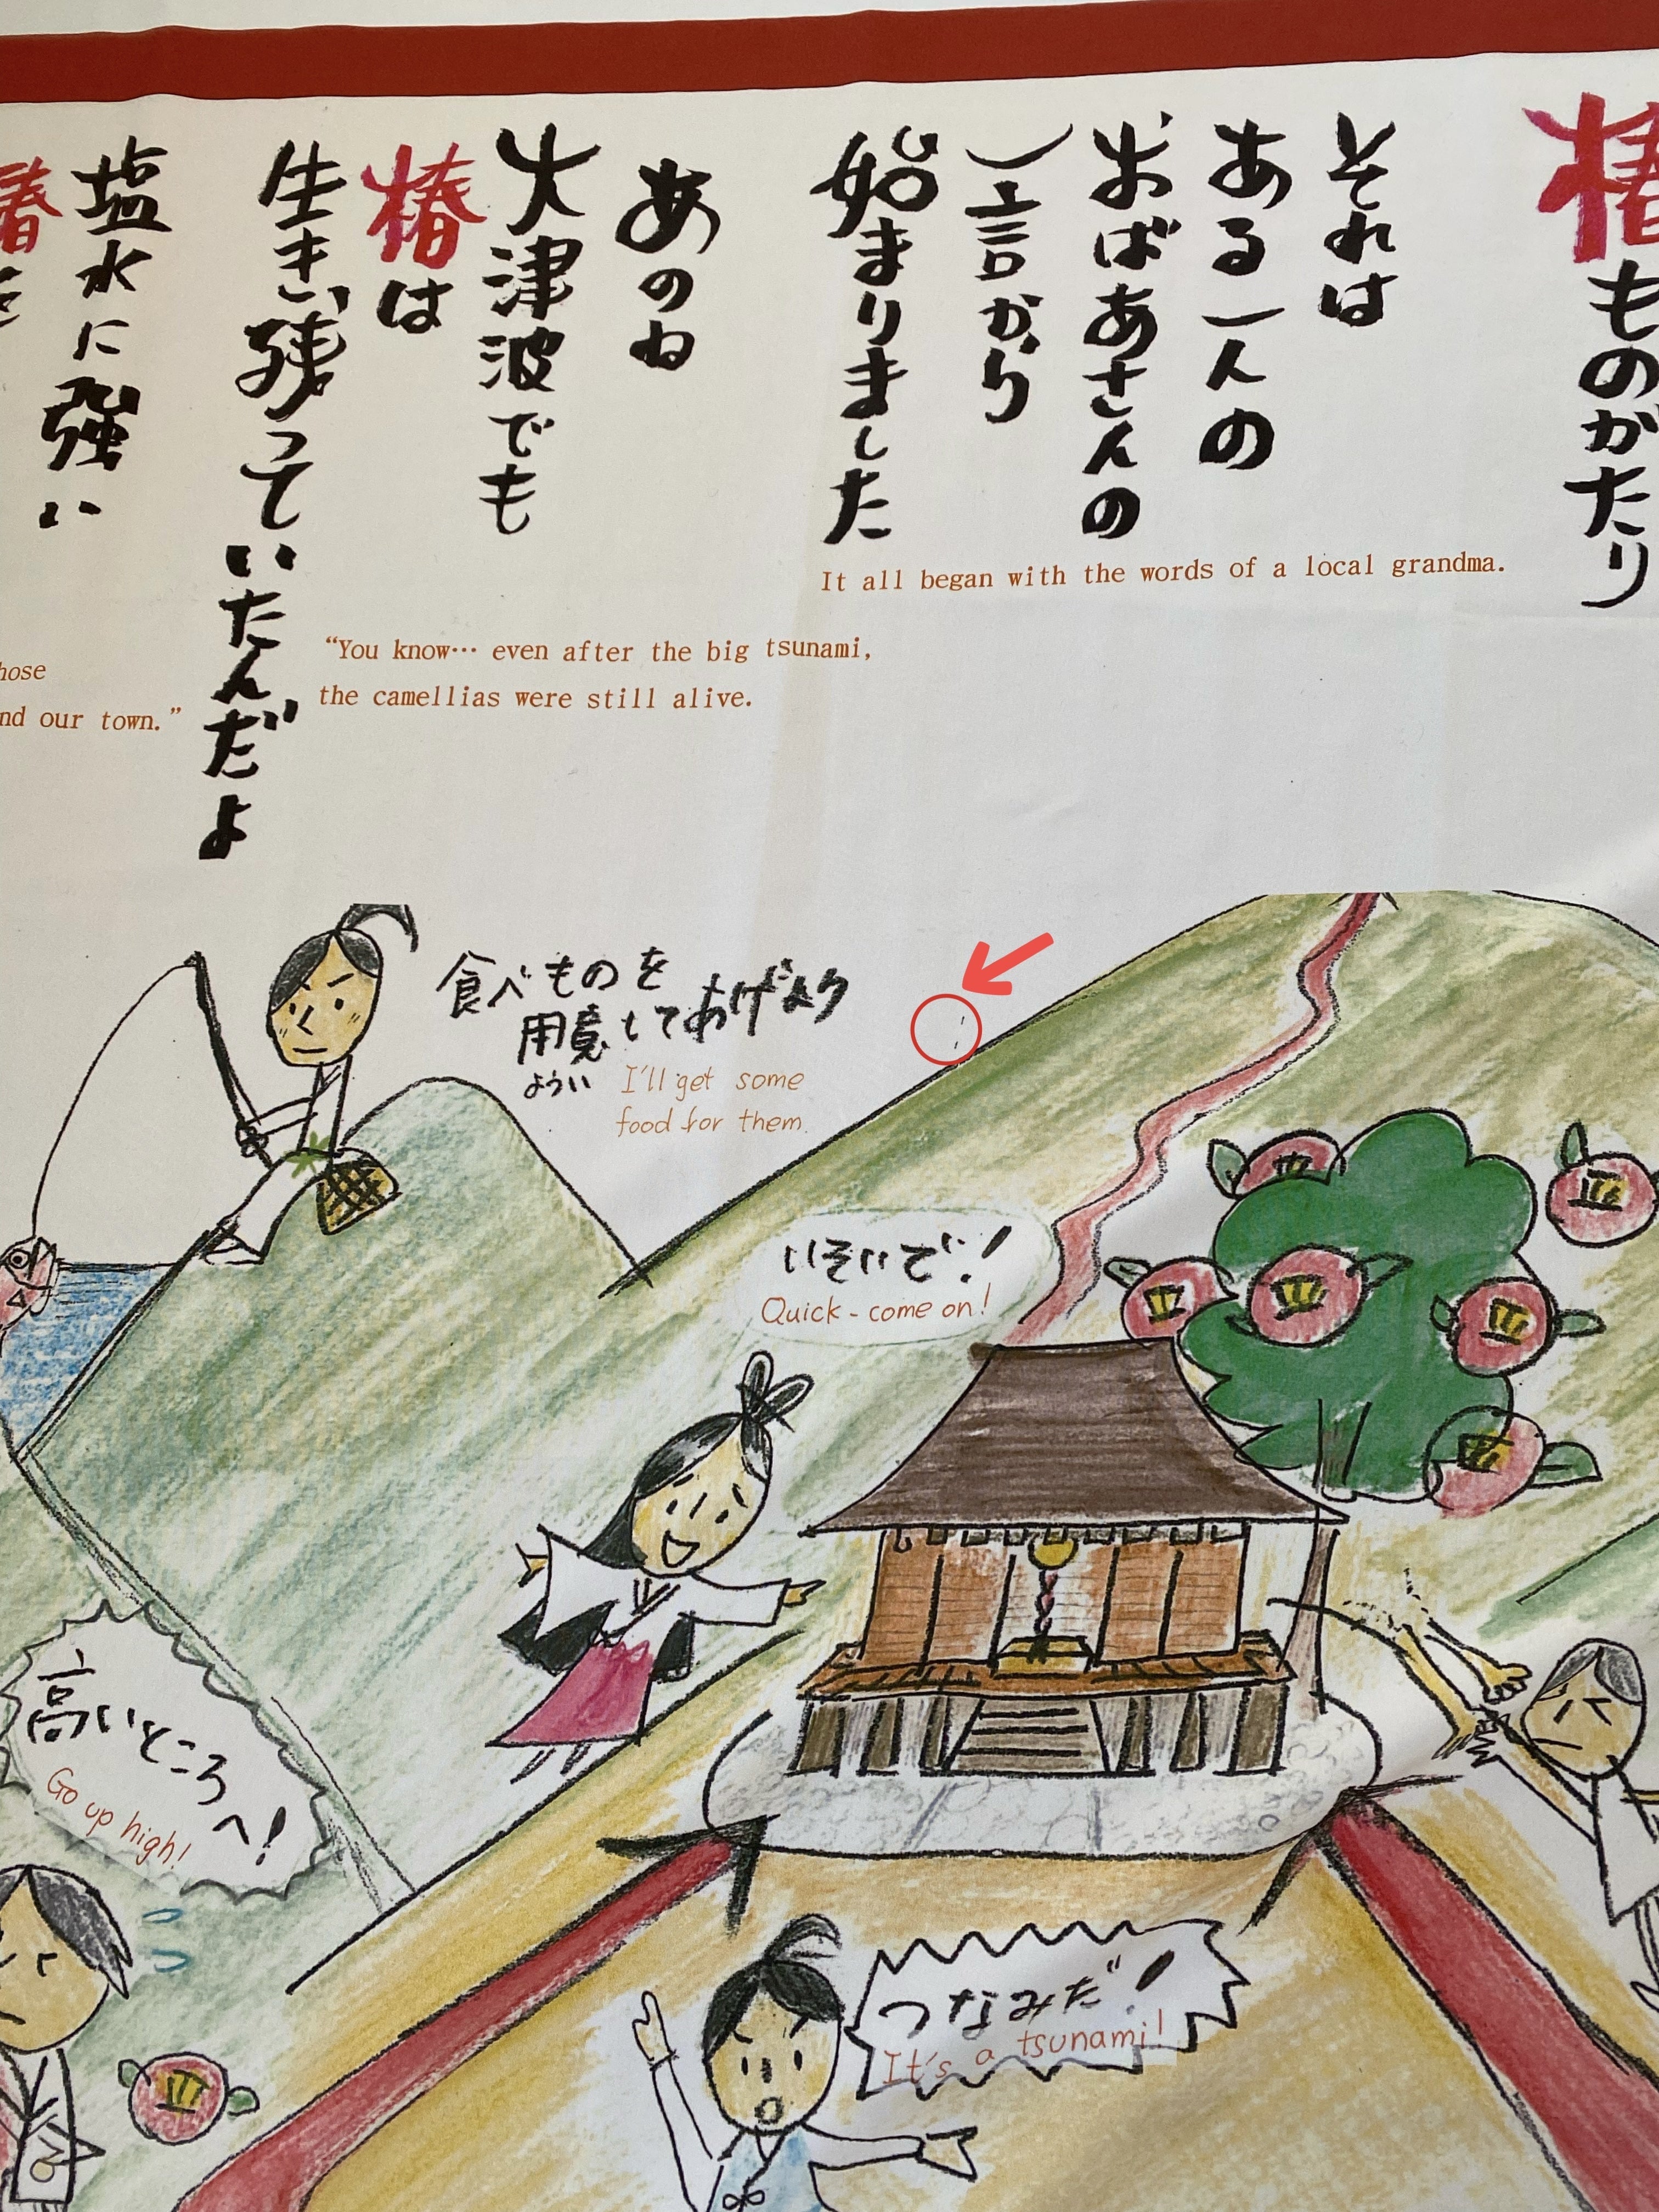 椿ものがたり
それは
ある一人の
おばあさんの
一言から
始まりました
It all began with the words of a local grandma.
あのね
大津波でも
椿は
生き残っていたんだよ
"You know… even after the big tsunami,
the camellias were still alive.
塩水に強い
nd our town."
食べものを
用意してあげよう
ようい
I'll get some
food for them.
いそいで!
Quick - come on!
高いところへ!
Go up high!
つなみだ!
It's a tsunami!